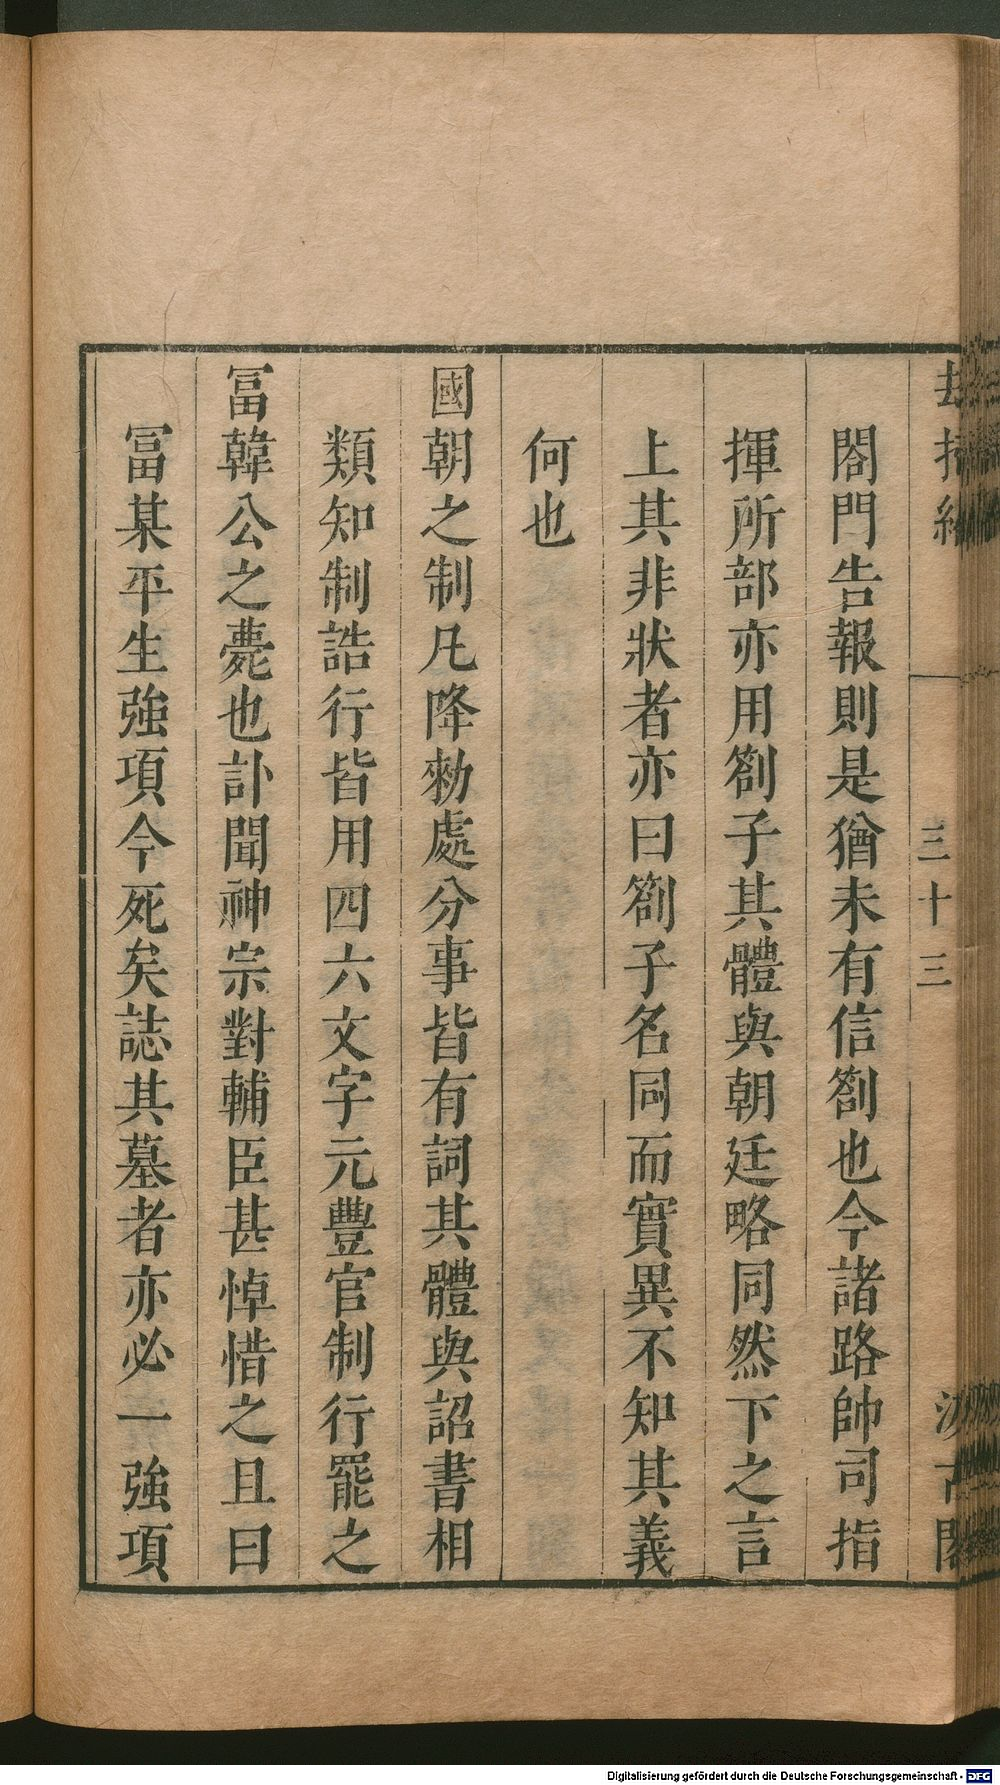 三十三
閤門告報則是猶未有信劄也今諸路帥司指
揮所部亦用劄子其體與朝廷略同然下之言
上其非狀者亦曰劄子名同而實異不知其義
何也
國朝之制凡降勑處分事皆有詞其體與詔書相
類知制誥行皆用四六文字元豐官制行罷之
冨韓公之薨也訃聞神宗對輔臣甚悼惜之且曰
冨某平生強項今死矣誌其墓者亦必一強項
Digitalisierung gefördert durch die Deutsche Forschungsgemeinschaft - DFG